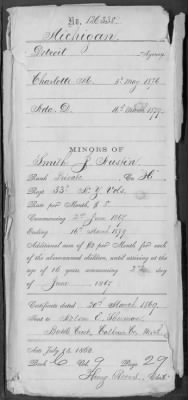 No. 126.338.
Michigan
Detroit Agency.
Charlotte M. 3d May 1876
Ada D. 16th March 1877
MINORS OF
Smith J. Austin
Rank Private Co. H.
Regt 33d N.Y. Vols.
Rate per Month, $ 8
Commencing 2d June 1867
Ending 16th March 1877
Additional sum of $2 per Month for each
of the abovenamed children, until arriving at the
age of 16 years commencing 2 day
of June 1867
Certificate dated 20th March 1869
Sent to
Battle Creek, Calhoun Co. Mich.
Act July 14 1862
Book C Vol. 9 Page 29
Clerk